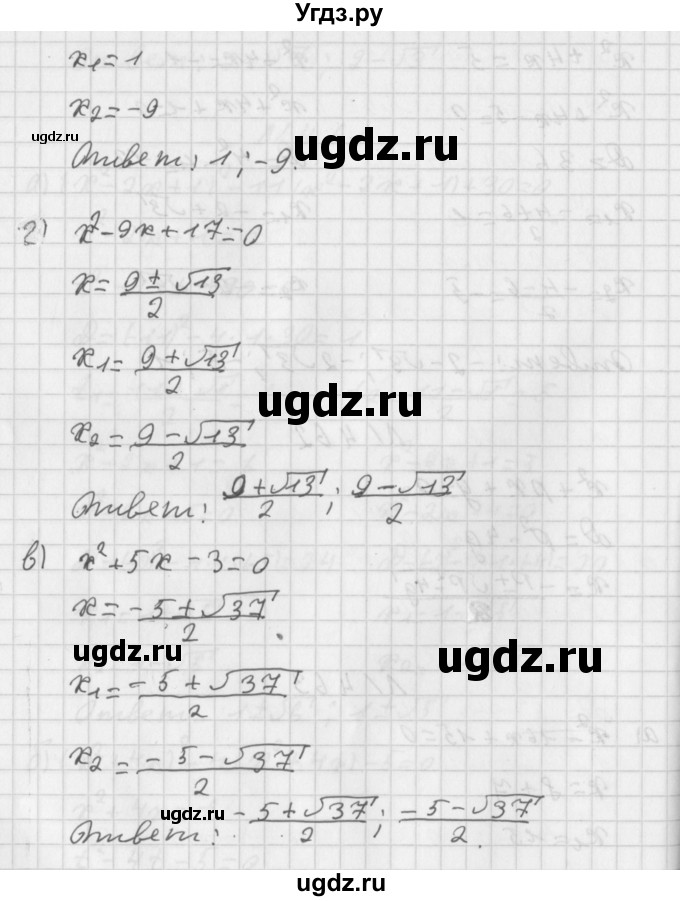 Угдз.ру
x₁=1
x₂=-9
ugdz.ru
ugdz.ru
Ответ: 1; -9.
г) x²-9x+17=0
x= (9±√13)/2
x₁= (9+√13)/2
ugdz.ru
ugdz.ru
x₂= (9-√13)/2
Ответ: (9+√13)/2; (9-√13)/2
в) x²+5x-3=0
x= (-5±√37)/2.
ugdz.ru
ugdz.ru
x₁= (-5+√37)/2
x₂= (-5-√37)/2
ugdz.ru
Ответ: (-5+√37)/2; (-5-√37)/2.
ugdz.ru